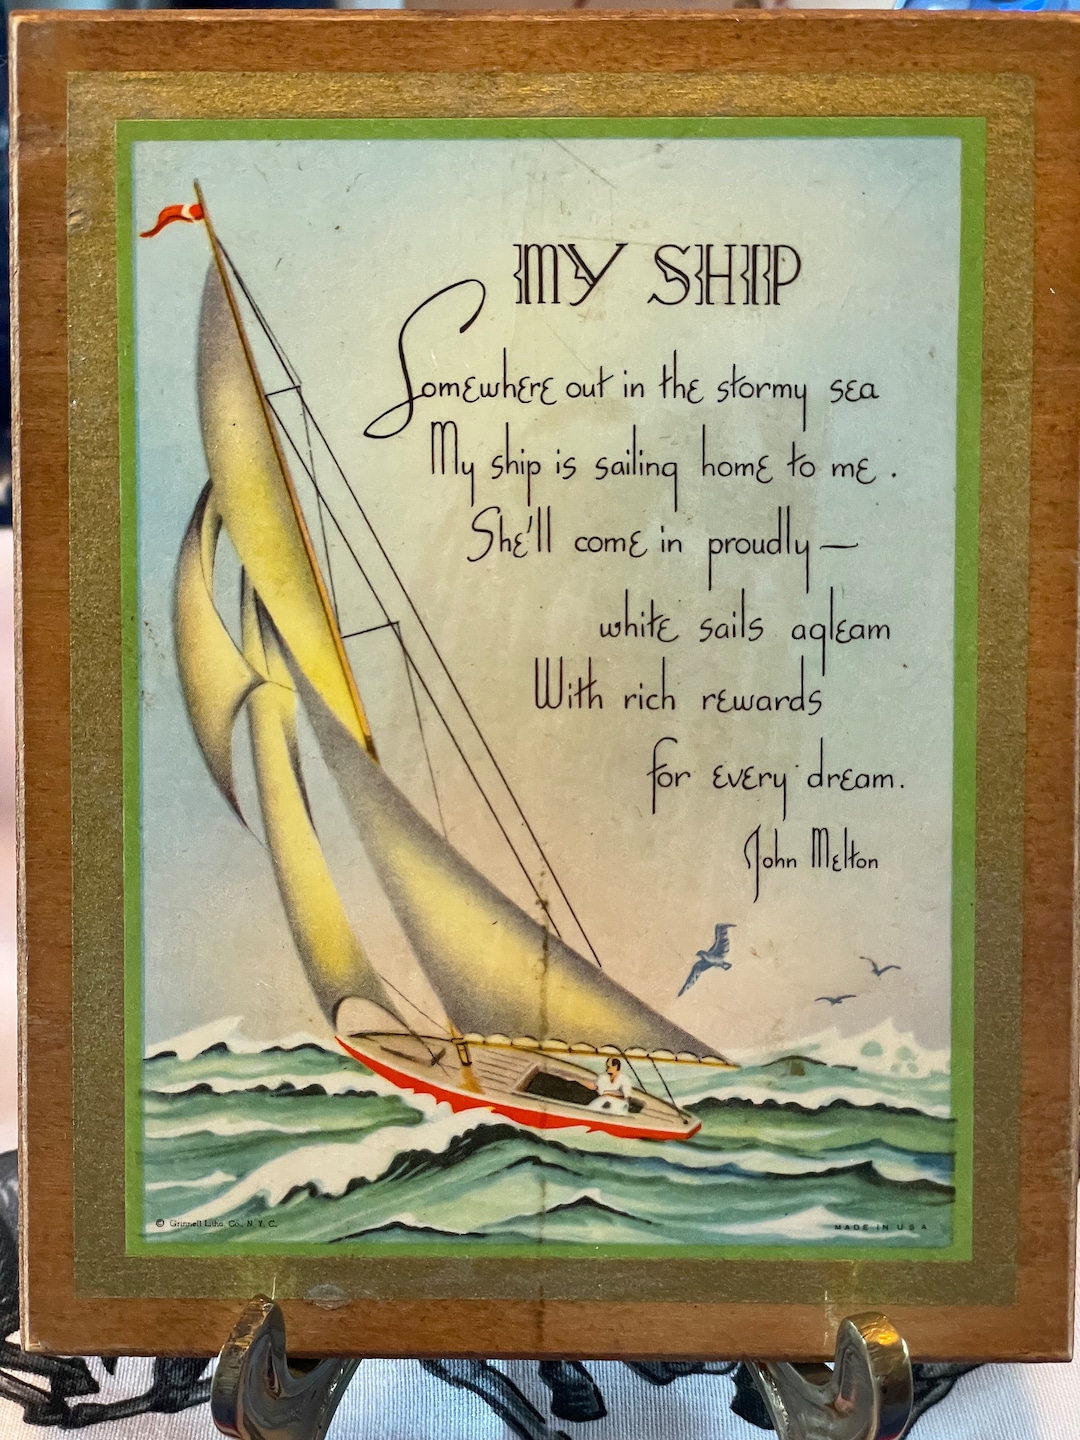 MY SHIP
Somewhere out in the stormy sea
My ship is sailing home to me.
She'll come in proudly —
white sails agleam
With rich rewards
for every dream.
John Melton
© Grinnell Litho. Co., N. Y. C.
MADE IN U S A